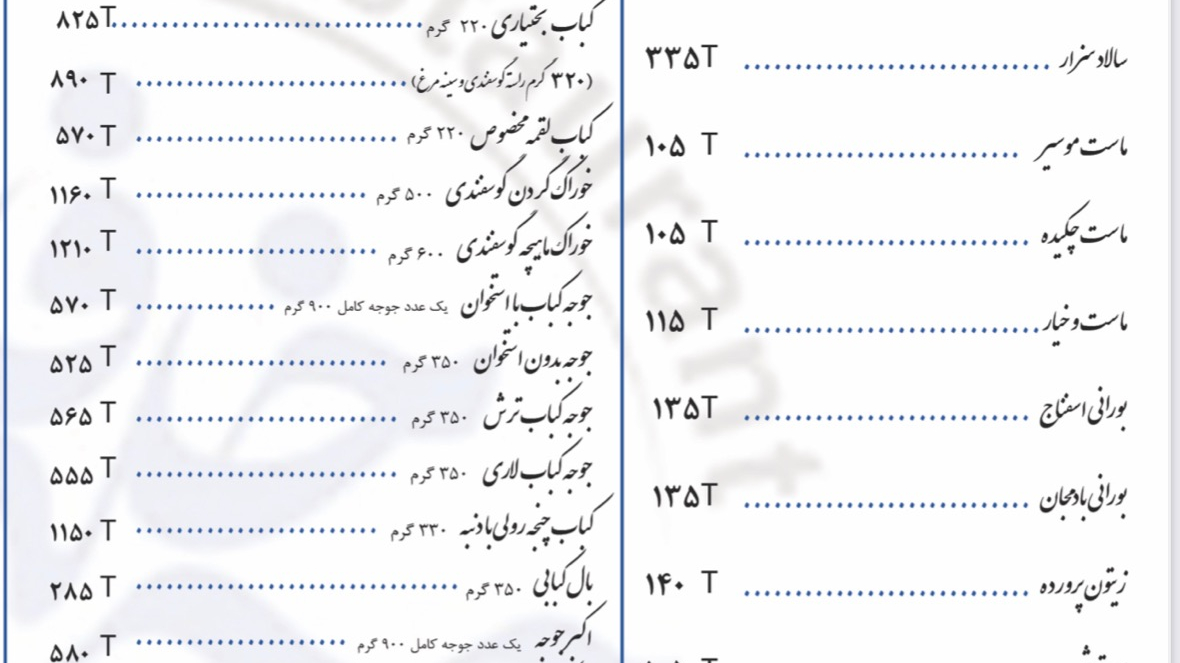 سالاد سزار ۳۳۵T
ماست موسیر ۱۰۵ T
ماست چکیده ۱۰۵ T
ماست و خیار ۱۱۵ T
بورانی اسفناج ۱۳۵T
بورانی بادمجان ۱۳۵T
زیتون پرورده ۱۴۰ T
کباب بختیاری ۲۲۰ گرم ۸۲۵T
(۳۲۰ گرم راسته گوسفندی و سینه مرغ) ۸۹۰ T
کباب لقمه مخصوص ۲۲۰ گرم ۵۷۰ T
خوراک گردن گوسفندی ۵۰۰ گرم ۱۱۶۰ T
خوراک ماهیچه گوسفندی ۶۰۰ گرم ۱۲۱۰ T
جوجه کباب با استخوان یک عدد جوجه کامل ۹۰۰ گرم ۵۷۰ T
جوجه بدون استخوان ۳۵۰ گرم ۵۲۵ T
جوجه کباب ترش ۳۵۰ گرم ۵۶۵ T
جوجه کباب لاری ۳۵۰ گرم ۵۵۵ T
کباب چنجه رولی با دنبه ۳۳۰ گرم ۱۱۵۰ T
بال کبابی ۳۵۰ گرم ۲۸۵ T
اکبر جوجه یک عدد جوجه کامل ۹۰۰ گرم ۵۸۰ T